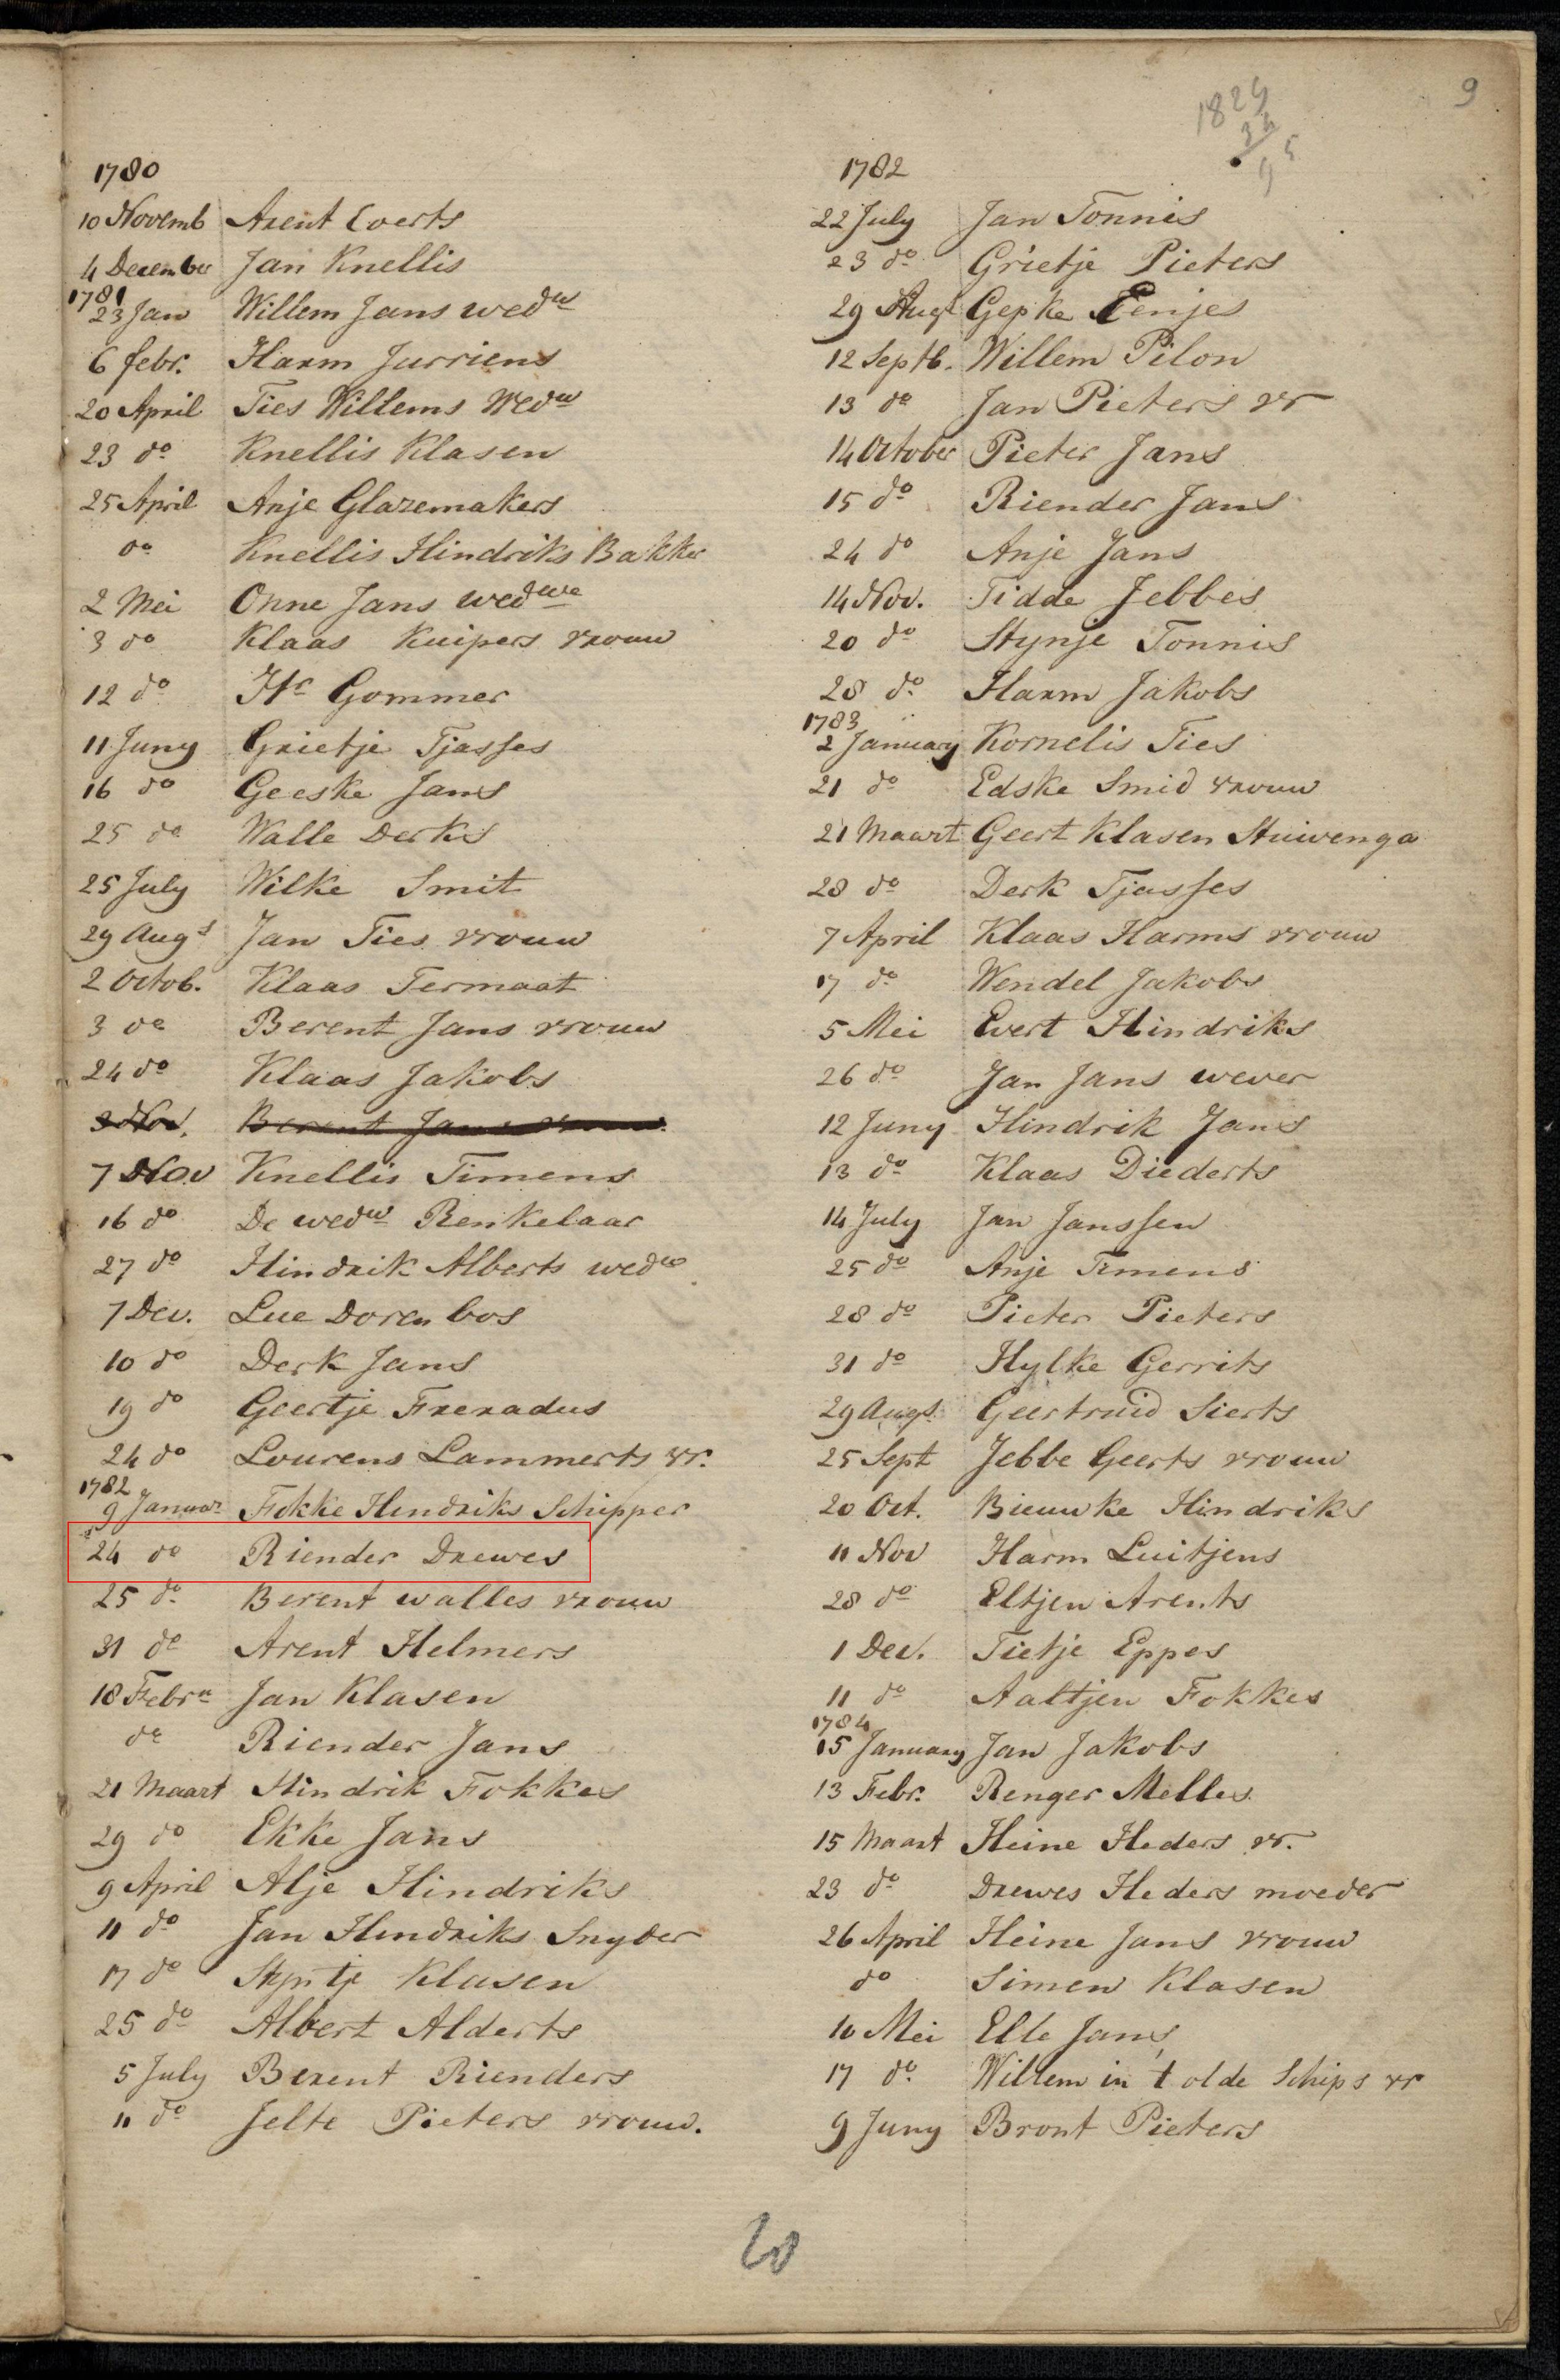 9
1829
34
95
1780
10 Novemb Arent Everts
4 December Jan Knellis
1781
23 Jan Willem Jans wedw
6 febr. Harm Jurriens
20 April Ties Willems Wedw
23 do Knellis Klasen
25 April Anje Glazemakers
do Knellis Hindriks Bakker
2 Mei Onne Jans wedwe
3 do Klaas Kuipers vrouw
12 do Hr Gommer
11 Juny Grietje Tjasses
16 do Geeske Jans
25 do Walle Derks
25 July Wilke Smit
29 Augs Jan Ties vrouw
2 Octob. Klaas Termaat
3 do Berent Jans vrouw
24 do Klaas Jakobs
3 Nov. Berent Jans vrouw.
7 Nov Knellis Timens
16 do De wedw Renkelaar
27 do Hindrik Alberts wedw
7 Dec. Lue Dorenbos
10 do Derk Jans
19 do Geertje Freradus
24 do Lourens Lammerts vr.
1782
9 Januar Fokke Hendriks Schipper
24 do Riender Drewes
25 do Berent walles vrouw
31 do Arent Helmers
18 Febru Jan Klasen
do Riender Jans
21 Maart Hindrik Fokkes
29 do Ekke Jans
9 April Alje Hindriks
11 do Jan Hendriks Snyder
17 do Styntje Klasen
25 do Albert Alderts
5 July Berent Rienders
11 do Jelte Pieters vrouw.
1782
22 July Jan Tonnis
23 do Grietje Pieters
29 Augt Gepke Eenjes
12 Septb. Willem Pilon
13 do Jan Pieters vr
14 October Pieter Jans
15 do Riender Jans
24 do Anje Jans
14 Nov. Tidde Jebbes
20 do Stynje Tonnis
28 do Harm Jakobs
1783
2 January Kornelis Ties
21 do Edske Smid vrouw
21 Maart Geert Klasen Stuivenga
28 do Derk Tjasses
7 April Klaas Harms vrouw
17 do Wendel Jakobs
5 Mei Evert Hindriks
26 do Jan Jans wever
12 Juny Hindrik Jans
13 do Klaas Diederts
14 July Jan Janssen
25 do Anje Timens
28 do Pieter Pieters
31 do Hylke Gerrits
29 Augs. Geertruid Sierts
25 Sept Jebbe Geerts vrouw
20 Oct. Bieuwke Hindriks
11 Nov Harm Luitjens
28 do Eltjen Arents
1 Dec. Tietje Eppes
11 do Aaltjen Fokkes
1784
15 January Jan Jakobs
13 Febr. Renger Melles
15 Maart Heine Heders vr.
23 do Drewes Heders moeder
26 April Heine Jans vrouw
do Simen Klasen
10 Mei Elle Jans
17 do Willem in 't olde Schips vr
9 Juny Bront Pieters
20